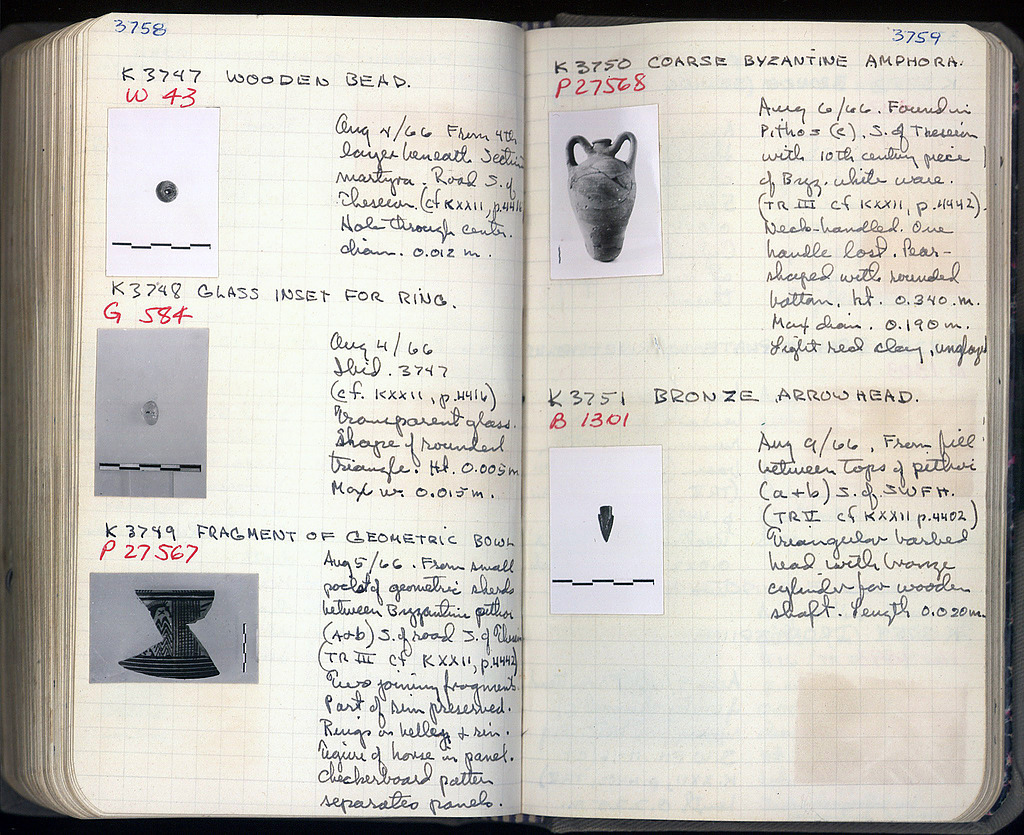 3758
K 3747 WOODEN BEAD.
W 43
Aug 4/66 From 4th
layer beneath Section
martyra. Road S. of
Theseion. (cf KXXII, p.4416
Hole through center.
diam. 0.012 m.
K 3748 GLASS INSET FOR RING.
G 584
Aug 4/66
Ibid. 3747
(cf. KXXII, p.4416)
Transparent glass.
Shape of rounded
triangle. Ht. 0.005m
Max w. 0.015m.
K 3749 FRAGMENT OF GEOMETRIC BOWL
P 27567
Aug 5/66. From small
pocket of geometric sherds
between Byzantine pithoi
(A+b) S. of road S. of Theseion
(TR III cf KXXII, p.4442)
Two joining fragments.
Part of rim preserved.
Rings on belley & rim.
Figure of horse in panel.
Checkerboard pattern
separates panels.
3759
K 3750 COARSE BYZANTINE AMPHORA.
P 27568
Aug 6/66. Found in
Pithos (c). S. of Theseion
with 10th century piece
of Byz. white ware.
(TR III cf KXXII, p.4442).
Neck-handled. One
handle lost. Pear-
shaped with rounded
bottom. ht. 0.340 m.
Max diam. 0.190 m.
Light red clay, unglazed
K 3751 BRONZE ARROWHEAD.
B 1301
Aug 9/66. From fill
between tops of pithoi
(a+b) S. of SWFH.
(TR V cf KXXII p.4402)
Triangular barbed
head with bronze
cylinder for wooden
shaft. Length 0.020m.